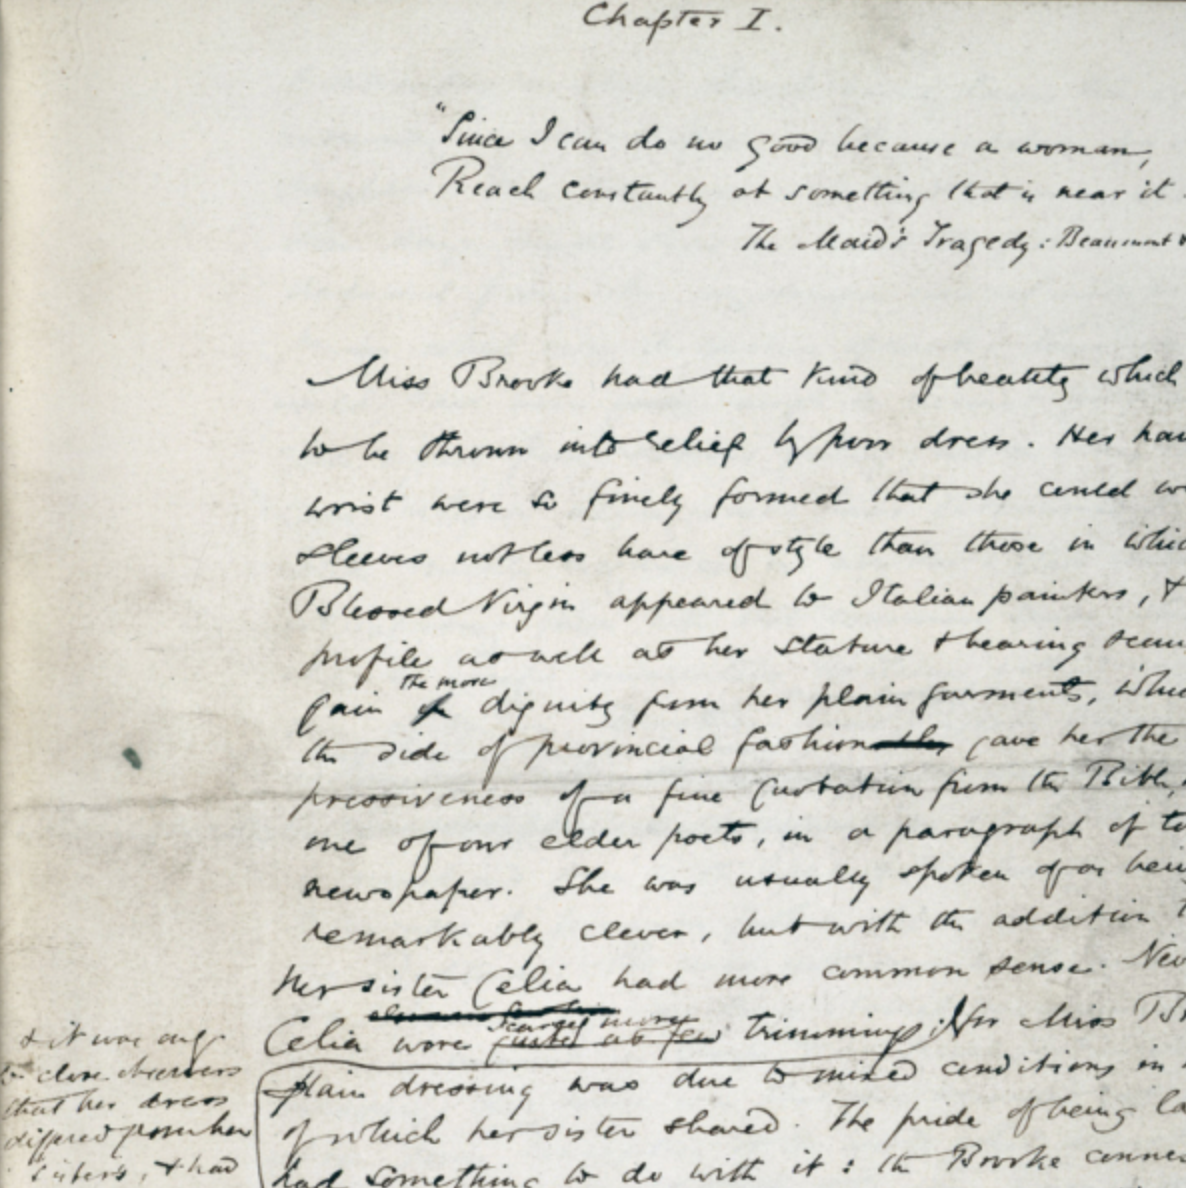 Chapter I.
"Since I can do no good because a woman,
Reach constantly at something that is near it.
The Maid's Tragedy: Beaumont &
Miss Brooke had that kind of beauty which
to be thrown into relief by poor dress. Her han
wrist were so finely formed that she could we
sleeves not less bare of style than those in whic
Blessed Virgin appeared to Italian painters, &
profile as well as her stature & bearing seem
the more
gain dignity from her plain garments, whic
the side of provincial fashion gave her the
pressiveness of a fine quotation from the Bible,
one of our elder poets, in a paragraph of to
newspaper. She was usually spoken of as bein
remarkably clever, but with the addition t
her sister Celia had more common sense. Nev
scarcely more
Celia wore trimmings; for Miss Br
& it was only
to close observers
that her dress
differed from her
sister's, & had
plain dressing was due to mixed conditions in
of which her sister shared. The pride of being la
had something to do with it: the Brooke connec